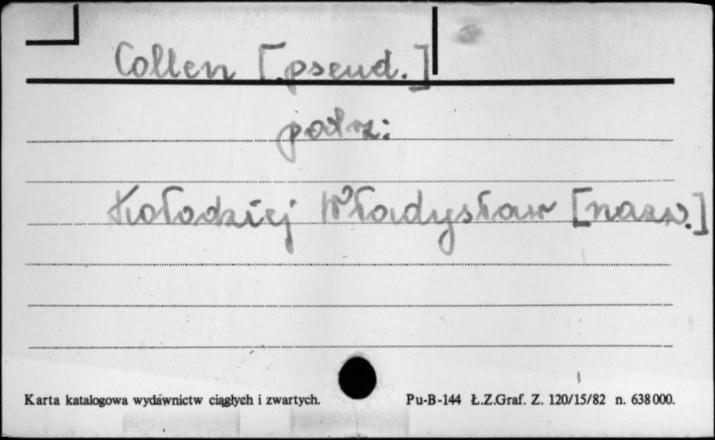 Collen [pseud.]
patrz:
Kołodziej Władysław [nazw.]
Karta katalogowa wydawnictw ciągłych i zwartych. Pu-B-144 Ł.Z.Graf. Z. 120/15/82 n. 638000.